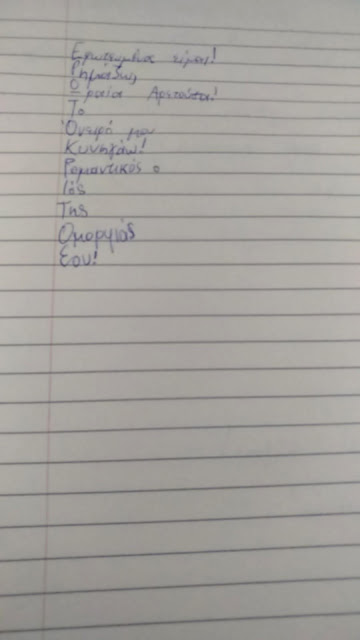 Ερωτευμένος είμαι!
Ρημάζω,
Ωραία Αρετούσα!
Το
Όνειρό μου
Κυνηγάω!
Ρομαντικός ο
Ιός
Της
Ομορφιάς
Σου!